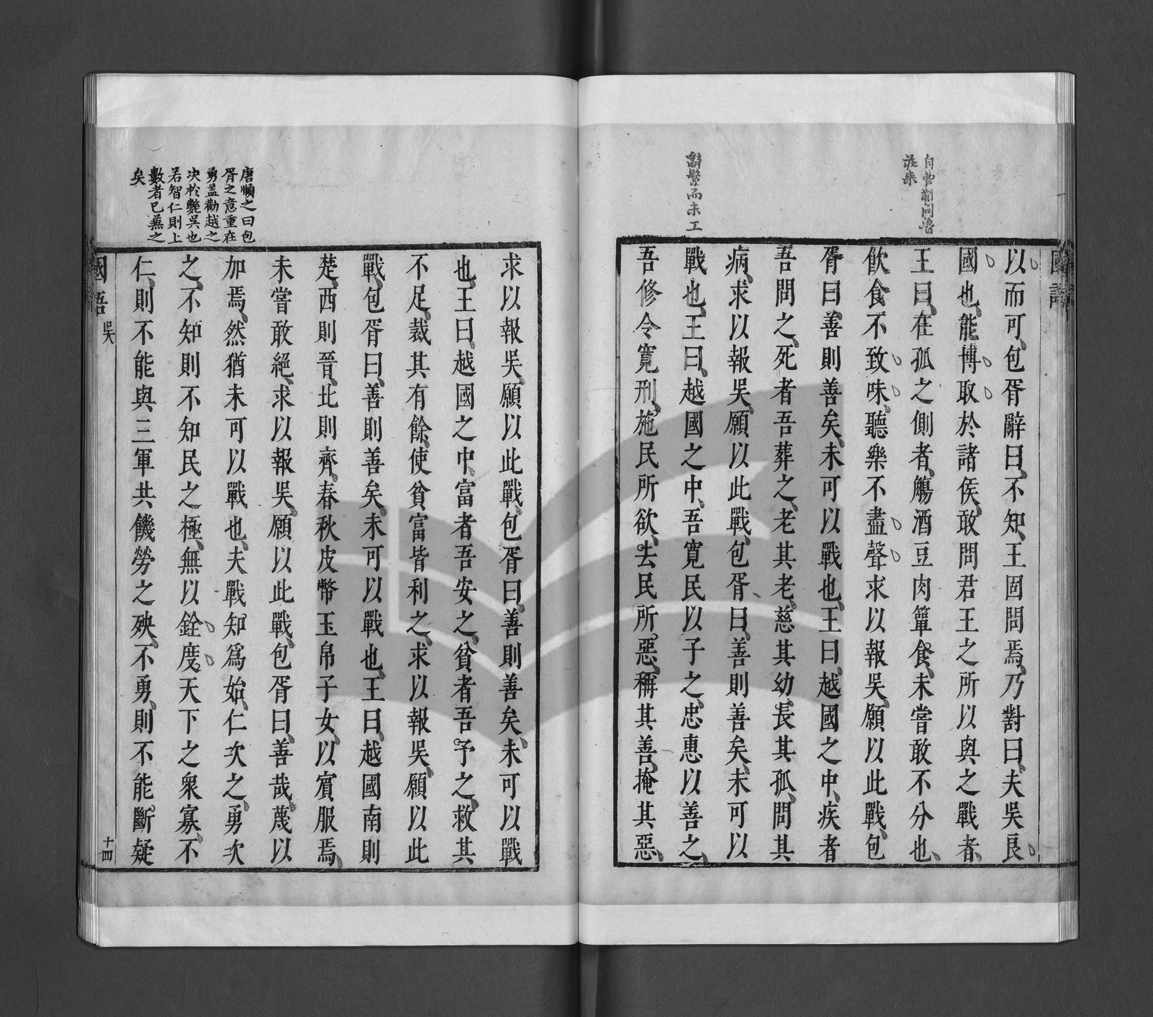 國語
以而可包胥辭曰不知王固問焉乃對曰夫吳良
國也能博取於諸侯敢問君王之所以與之戰者
王曰在孤之側者觴酒豆肉簞食未嘗敢不分也
飲食不致味聽樂不盡聲求以報吳願以此戰包
胥曰善則善矣未可以戰也王曰越國之中疾者
吾問之死者吾葬之老其老慈其幼長其孤問其
病求以報吳願以此戰包胥曰善則善矣未可以
戰也王曰越國之中吾寬民以子之忠惠以善之
吾修令寬刑施民所欲去民所惡稱其善掩其惡
辭繁而未工
求以報吳願以此戰包胥曰善則善矣未可以戰
也王曰越國之中富者吾安之貧者吾予之救其
不足裁其有餘使貧富皆利之求以報吳願以此
戰包胥曰善則善矣未可以戰也王曰越國南則
楚西則晉北則齊春秋皮幣玉帛子女以賓服焉
未嘗敢絕求以報吳願以此戰包胥曰善哉蔑以
加焉然猶未可以戰也夫戰知爲始仁次之勇次
之不知則不知民之極無以銓度天下之衆寡不
仁則不能與三軍共饑勞之殃不勇則不能斷疑
唐順之曰包
胥之意重在
勇蓋勸越之
决於斃吳也
若智仁則上
數者已蕪之
矣
國語 吳 十四